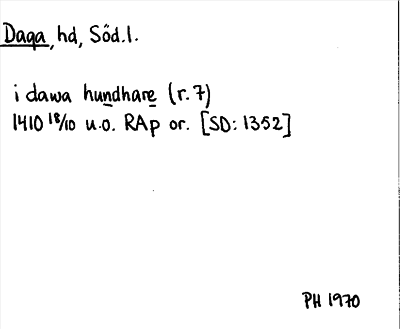 Daga, hd, Söd.l.
i dawa hundhare (r. 7)
1410 18/10 u.o. RAp or. [SD: 1352]
PH 1970